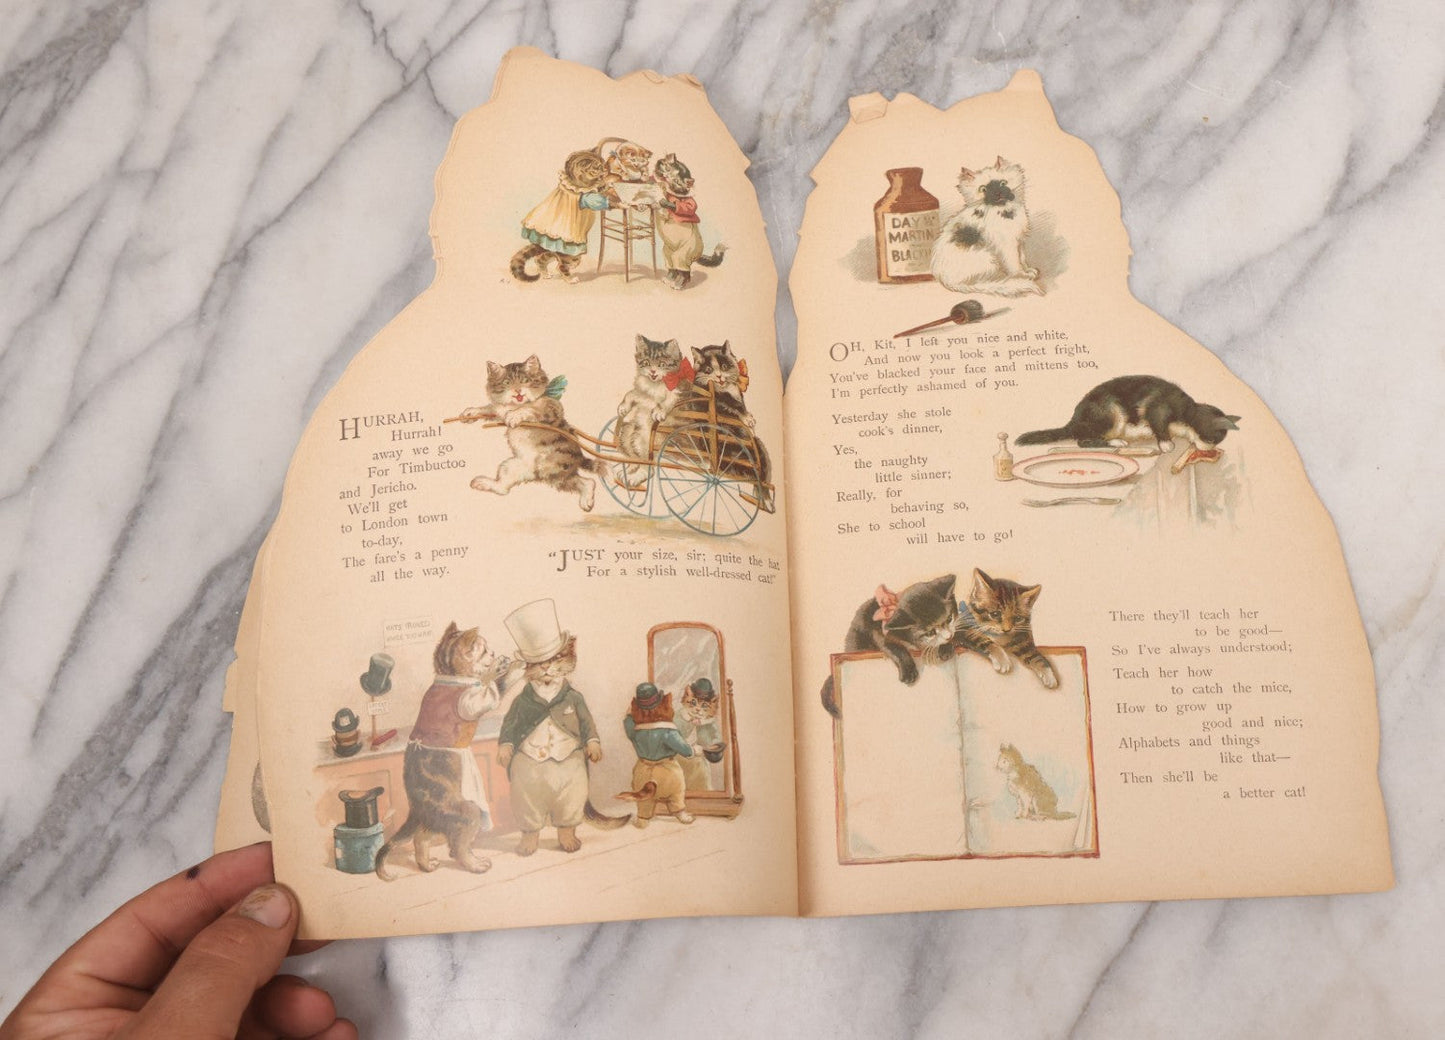 HURRAH,
Hurrah!
away we go
For Timbuctoo
and Jericho.
We'll get
to London town
to-day,
The fare's a penny
all the way.
"JUST your size, sir; quite the hat
For a stylish well-dressed cat!"
DAY &
MARTIN
BLACK
OH, Kit, I left you nice and white,
And now you look a perfect fright,
You've blacked your face and mittens too,
I'm perfectly ashamed of you.
Yesterday she stole
cook's dinner,
Yes,
the naughty
little sinner;
Really, for
behaving so,
She to school
will have to go!
There they'll teach her
to be good—
So I've always understood;
Teach her how
to catch the mice,
How to grow up
good and nice;
Alphabets and things
like that—
Then she'll be
a better cat!